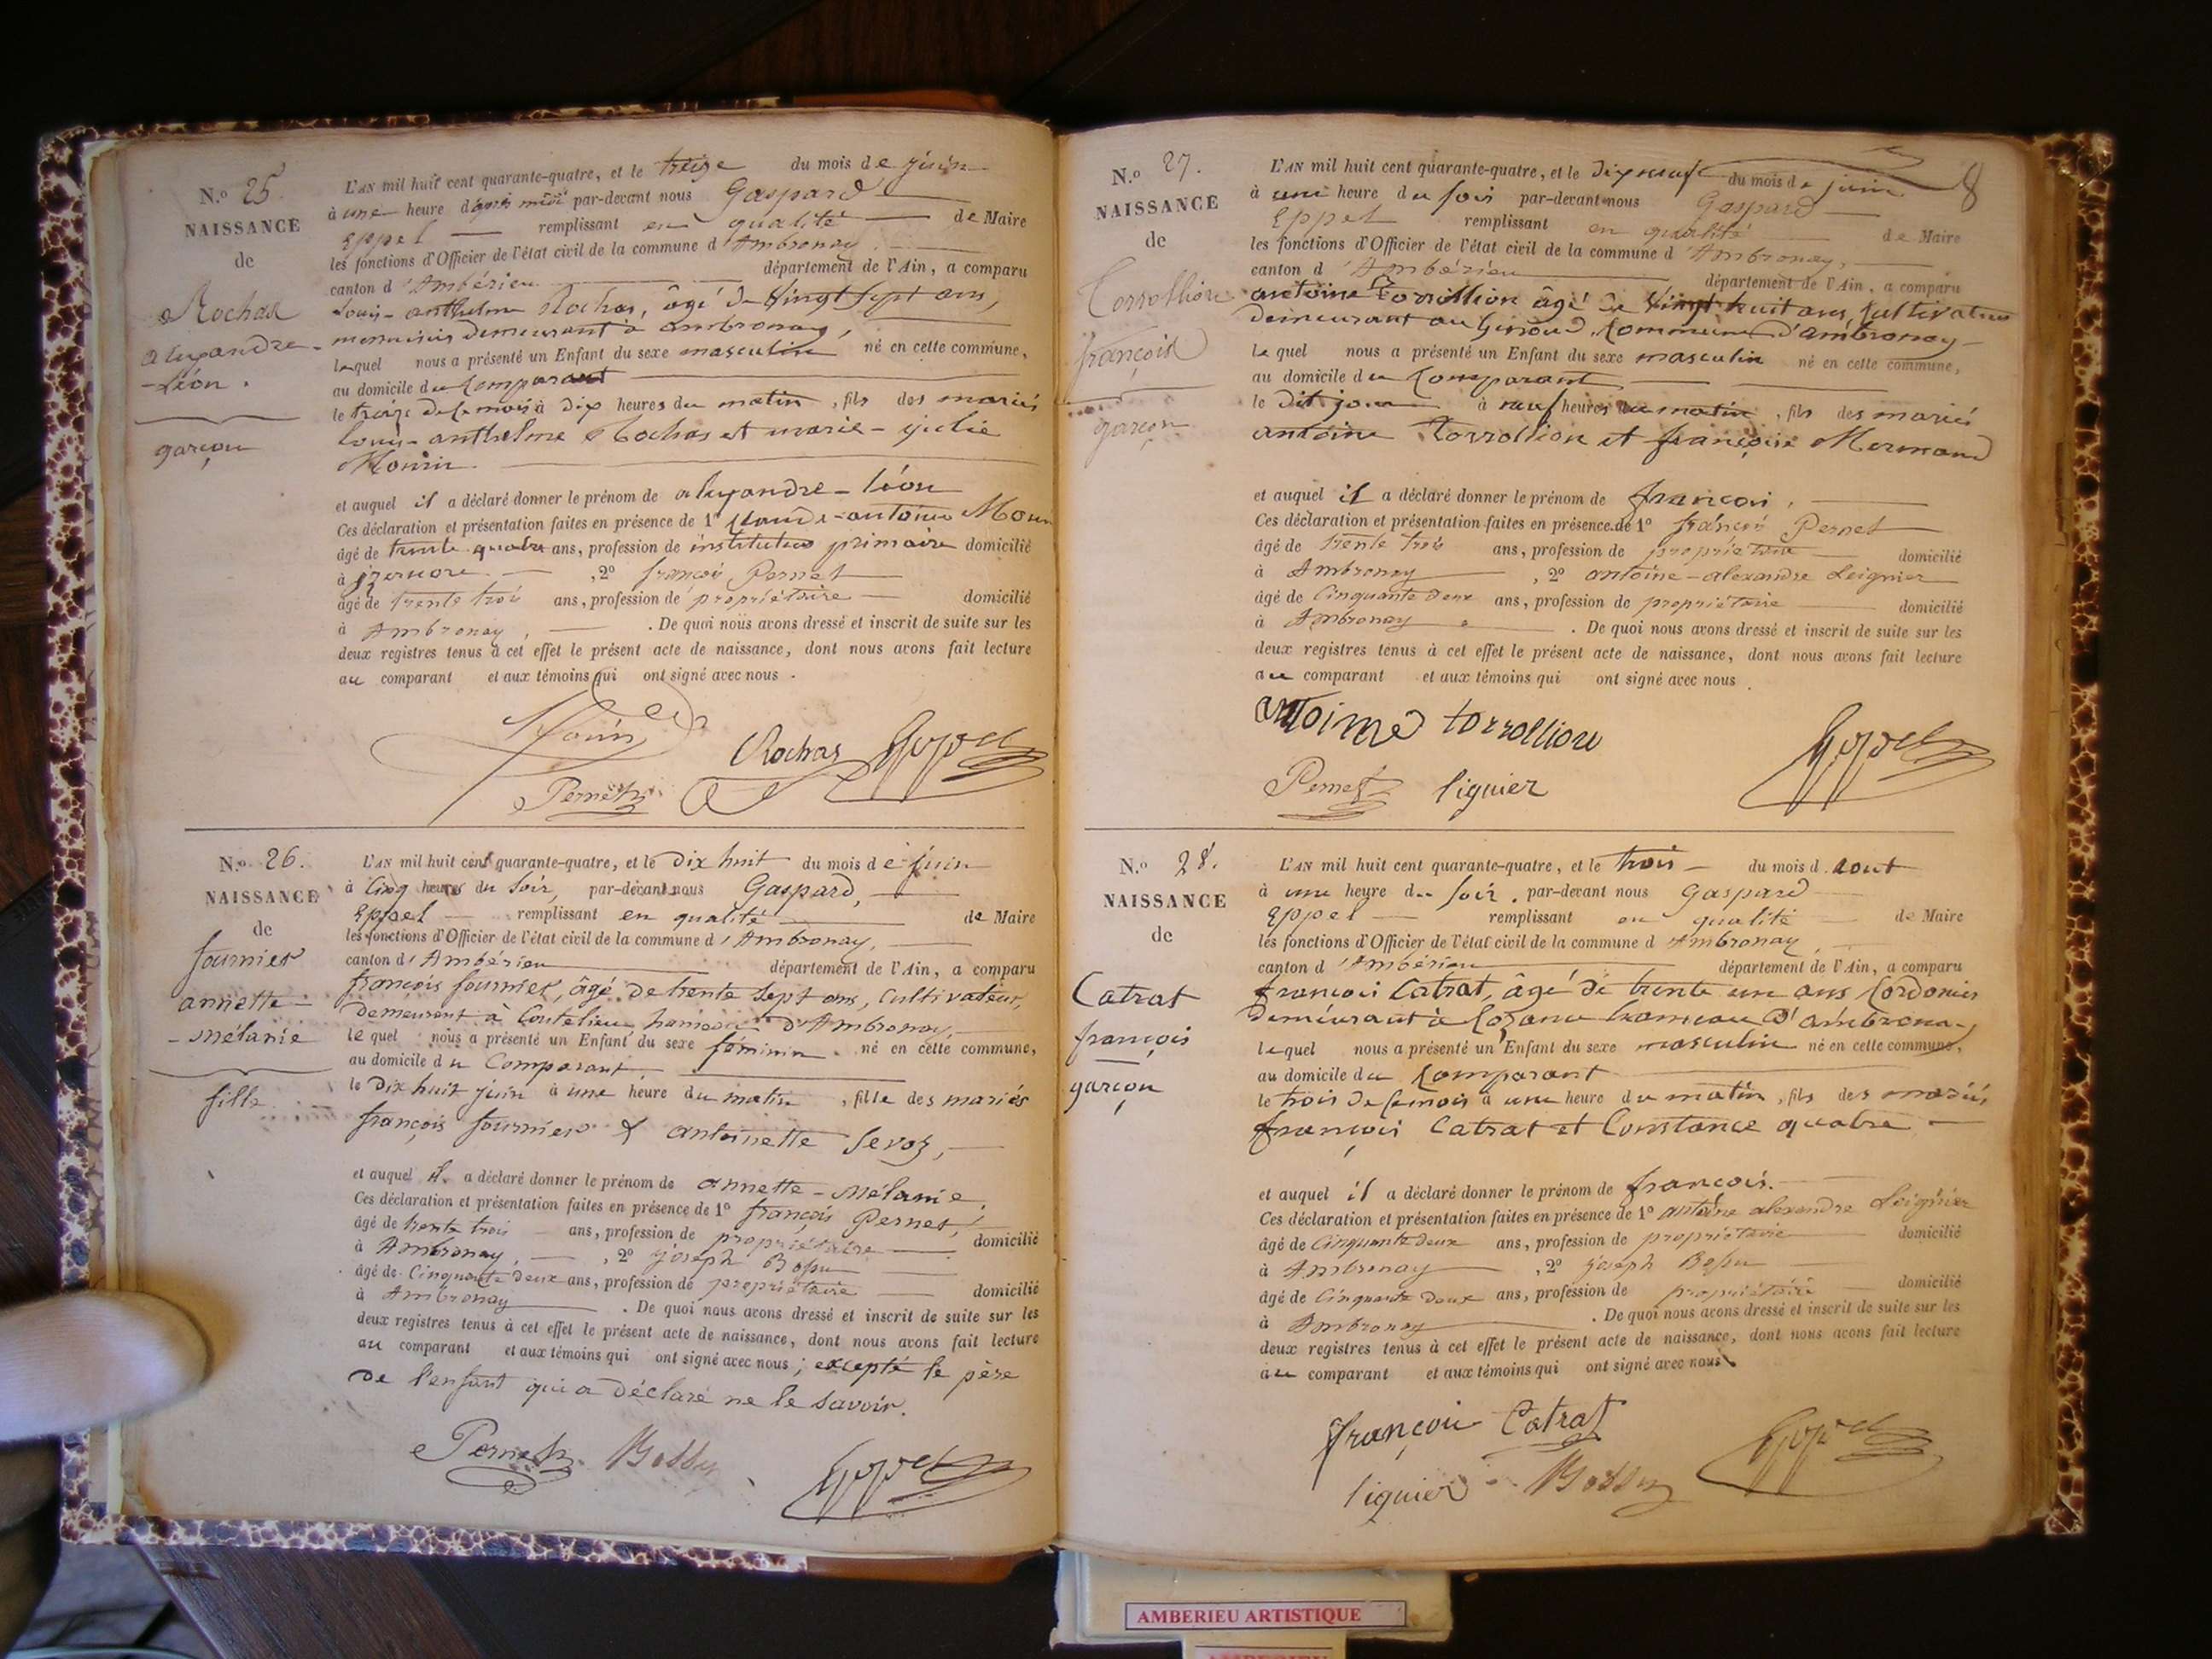 N.o 25.
NAISSANCE
de
Rochas
alexandre-
-léon.
garçon
L'AN mil huit cent quarante-quatre, et le treize du mois de juin
à une heure d'après midi par-devant nous Gaspard
Eppel remplissant en qualité de Maire
les fonctions d'Officier de l'état civil de la commune d'Ambronay.
canton d'Ambérieu département de l'Ain, a comparu
louis-anthelme Rochas, âgé de vingt sept ans,
menuisier demeurant à ambronay,
lequel nous a présenté un Enfant du sexe masculin né en cette commune,
au domicile du comparant
le treize de ce mois à dix heures du matin, fils des mariés
louis-anthelme Rochas et marie-julie
Mounin.
et auquel il a déclaré donner le prénom de alexandre-léon
Ces déclaration et présentation faites en présence de 1° claude-antoine
âgé de trente quatre ans, profession de instituteur primaire domicilié
à , 2° françois Pernet
âgé de trente trois ans, profession de propriétaire domicilié
à Ambronay, . De quoi nous avons dressé et inscrit de suite sur les
deux registres tenus à cet effet le présent acte de naissance, dont nous avons fait lecture
au comparant et aux témoins qui ont signé avec nous.
Rochas Eppel
Pernet
N.o 26.
NAISSANCE
de
fournier
annette-
-mélanie
fille
L'AN mil huit cent quarante-quatre, et le dix huit du mois de juin
à cinq heures du soir, par-devant nous Gaspard,
Eppel remplissant en qualité de Maire
les fonctions d'Officier de l'état civil de la commune d'Ambronay,
canton d'Ambérieu département de l'Ain, a comparu
françois fournier, âgé de trente sept ans, cultivateur,
demeurant à Coutelieu hameau d'Ambronay,
lequel nous a présenté un Enfant du sexe féminin né en cette commune,
au domicile du Comparant
le dix huit juin à une heure du matin, fille des mariés
françois fournier & antoinette Sevoz,
et auquel il a déclaré donner le prénom de annette-mélanie.
Ces déclaration et présentation faites en présence de 1° françois Pernet,
âgé de trente trois ans, profession de propriétaire domicilié
à Ambronay, , 2° joseph Bossu
âgé de Cinquante deux ans, profession de propriétaire domicilié
à Ambronay . De quoi nous avons dressé et inscrit de suite sur les
deux registres tenus à cet effet le présent acte de naissance, dont nous avons fait lecture
au comparant et aux témoins qui ont signé avec nous; excepté le père
de l'enfant qui a déclaré ne le savoir.
Pernet Bossu Eppel
8
N.o 27.
NAISSANCE
de
Torrollion
françois
garçon
L'AN mil huit cent quarante-quatre, et le dix neuf du mois de juin
à une heure du soir par-devant nous Gaspard
Eppel remplissant en qualité de Maire
les fonctions d'Officier de l'état civil de la commune d'Ambronay,
canton d'Ambérieu département de l'Ain, a comparu
antoine Torrollion âgé de vingt huit ans, cultivateur
demeurant au Genoud, commune d'ambronay
lequel nous a présenté un Enfant du sexe masculin né en cette commune,
au domicile du comparant
le dit jour à neuf heures du matin, fils des mariés
antoine Torrollion et françoise Mermand
et auquel il a déclaré donner le prénom de françois,
Ces déclaration et présentation faites en présence de 1° françois Pernet
âgé de trente trois ans, profession de propriétaire domicilié
à Ambronay , 2° antoine-alexandre Leignier
âgé de Cinquante deux ans, profession de propriétaire domicilié
à Ambronay . De quoi nous avons dressé et inscrit de suite sur les
deux registres tenus à cet effet le présent acte de naissance, dont nous avons fait lecture
au comparant et aux témoins qui ont signé avec nous.
antoine torrollion
Pernet liguier Eppel
N.o 28.
NAISSANCE
de
Catrat
françois
garçon
L'AN mil huit cent quarante-quatre, et le trois du mois d'aout
à une heure du soir, par-devant nous Gaspard
Eppel remplissant en qualité de Maire
les fonctions d'Officier de l'état civil de la commune d'Ambronay,
canton d'Ambérieu département de l'Ain, a comparu
françois Catrat, âgé de trente un ans Cordonier
demeurant à hameau d'ambronay
lequel nous a présenté un Enfant du sexe masculin né en cette commune,
au domicile du comparant
le trois de ce mois à une heure du matin, fils des mariés
françois Catrat et Constance quatre
et auquel il a déclaré donner le prénom de françois.
Ces déclaration et présentation faites en présence de 1° antoine alexandre Leignier
âgé de Cinquante deux ans, profession de propriétaire domicilié
à Ambronay , 2° joseph Bossu
âgé de Cinquante deux ans, profession de propriétaire domicilié
à Ambronay . De quoi nous avons dressé et inscrit de suite sur les
deux registres tenus à cet effet le présent acte de naissance, dont nous avons fait lecture
au comparant et aux témoins qui ont signé avec nous.
françois Catrat
liguier Bossu Eppel
AMBERIEU ARTISTIQUE
AMBERIEU